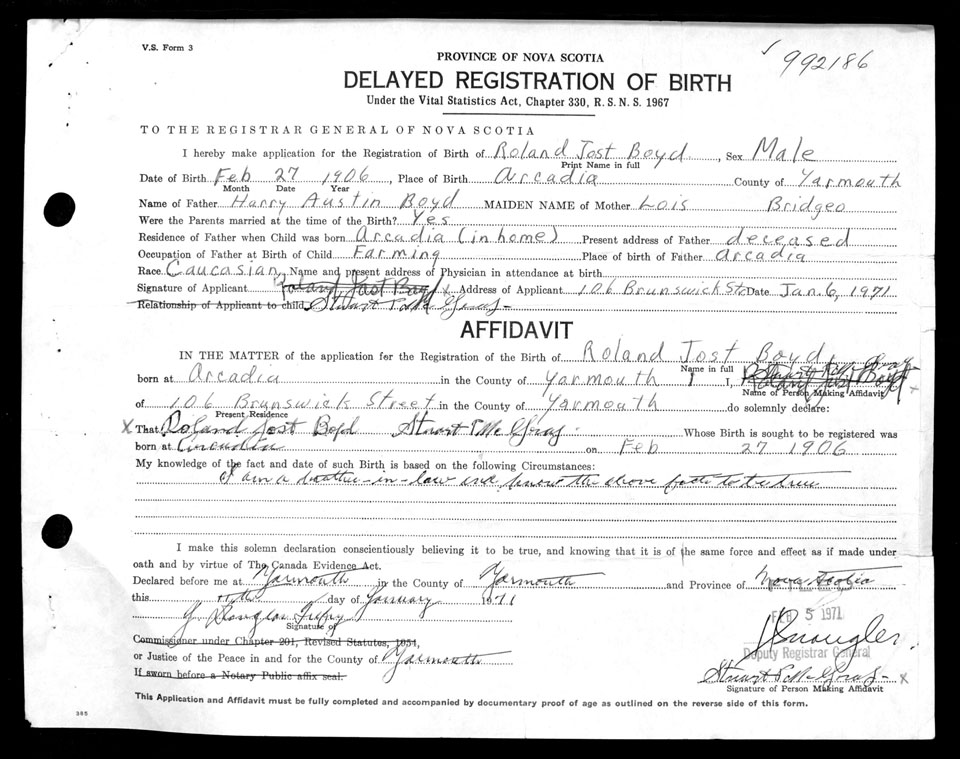 V.S. Form 3
992186
PROVINCE OF NOVA SCOTIA
DELAYED REGISTRATION OF BIRTH
Under the Vital Statistics Act, Chapter 330, R.S.N.S. 1967
TO THE REGISTRAR GENERAL OF NOVA SCOTIA
I hereby make application for the Registration of Birth of Roland Jost Boyd, Sex Male
Print Name in full
Date of Birth Feb 27 1906, Place of Birth Arcadia County of Yarmouth
Month Date Year
Name of Father Harry Austin Boyd MAIDEN NAME of Mother Lois Bridgeo
Were the Parents married at the time of the Birth? Yes
Residence of Father when Child was born Arcadia (in home) Present address of Father deceased
Occupation of Father at Birth of Child Farming Place of birth of Father Arcadia
Race Caucasian Name and present address of Physician in attendance at birth
Signature of Applicant Roland Jost Boyd Address of Applicant 106 Brunswick St. Date Jan. 6, 1971
Relationship of Applicant to child Stuart
AFFIDAVIT
IN THE MATTER of the application for the Registration of the Birth of Roland Jost Boyd
Name in full
born at Arcadia in the County of Yarmouth I, Roland Jost Boyd
Name of Person Making Affidavit
of 106 Brunswick Street in the County of Yarmouth do solemnly declare:
Present Residence
X That Roland Jost Boyd Stuart Whose Birth is sought to be registered was
born at on Feb 27 1906
My knowledge of the fact and date of such Birth is based on the following Circumstances:
I am a brother-in-law and know the above facts to be true
I make this solemn declaration conscientiously believing it to be true, and knowing that it is of the same force and effect as if made under
oath and by virtue of The Canada Evidence Act.
Declared before me at Yarmouth in the County of Yarmouth and Province of Nova Scotia
this day of January 1971
FEB 5 1971
Signature of
Commissioner under Chapter 201, Revised Statutes, 1954,
Deputy Registrar General
or Justice of the Peace in and for the County of Yarmouth
If sworn before a Notary Public affix seal.
Stuart X
Signature of Person Making Affidavit
This Application and Affidavit must be fully completed and accompanied by documentary proof of age as outlined on the reverse side of this form.
385